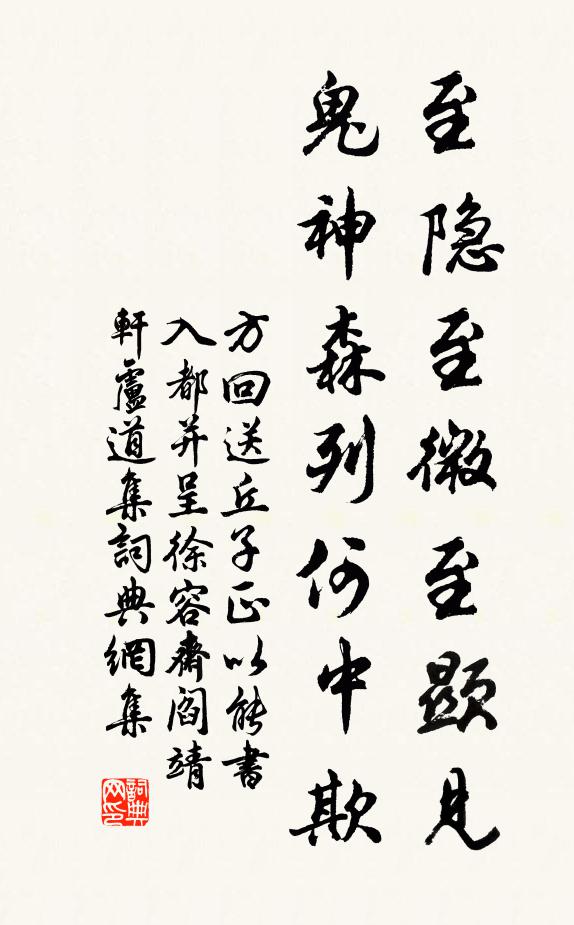 至隐至微至显见
鬼神森列何中欺
方回送丘子正以能書
入都并呈徐容齋阎靖
軒盧道集詞典網集
詞典
网印